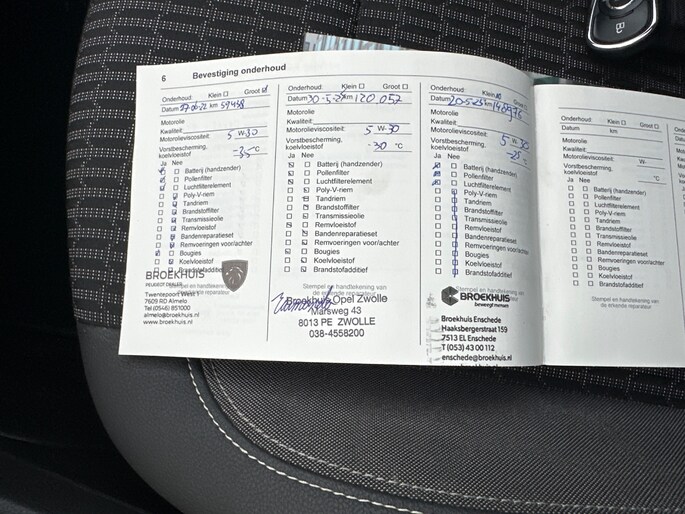 6 Bevestiging onderhoud
Onderhoud: Klein Groot
Datum 27 06-22 km 59458
Motorolie
Kwaliteit
Motorolieviscositeit: 5 W-30
Vorstbescherming, koelvloeistof -35 °C
Ja Nee
Batterij (handzender)
Pollenfilter
Luchtfilterelement
Poly-V-riem
Tandriem
Brandstoffilter
Transmissieolie
Remvloeistof
Bandenreparatieset
Remvoeringen voor/achter
Bougies
Koelvloeistof
Brandstofadditief
Stempel en handtekening van de erkende reparateur
BROEKHUIS
PEUGEOT DEALER
Twentepoort West 1
7609 RD Almelo
Tel (0546) 851000
almelo@broekhuis.nl
www.broekhuis.nl
Onderhoud: Klein Groot
Datum 30-5-24 km 120.057
Motorolie
Kwaliteit:
Motorolieviscositeit: 5 W-30
Vorstbescherming, koelvloeistof -30 °C
Ja Nee
Batterij (handzender)
Pollenfilter
Luchtfilterelement
Poly-V-riem
Tandriem
Brandstoffilter
Transmissieolie
Remvloeistof
Bandenreparatieset
Remvoeringen voor/achter
Bougies
Koelvloeistof
Brandstofadditief
Stempel en handtekening van de erkende reparateur
Broekhuis Opel Zwolle
Marsweg 43
8013 PE ZWOLLE
038-4558200
Onderhoud: Klein Groot
Datum 20-5-25 km
Motorolie
Kwaliteit:
Motorolieviscositeit: 5 W-30
Vorstbescherming, koelvloeistof -25
Ja Nee
Batterij (handzender)
Pollenfilter
Luchtfilterelement
Poly-V-riem
Tandriem
Brandstoffilter
Transmissieolie
Remvloeistof
Bandenreparatieset
Remvoeringen voor/achter
Bougies
Koelvloeistof
Brandstofadditief
Stempel en handtekening van de erkende reparateur
BROEKHUIS
beweegt mensen
Broekhuis Enschede
Haaksbergerstraat 159
7513 EL Enschede
T (053) 43 00 112
enschede@broekhuis.nl
Onderhoud: Klein Groot
Datum km
Motorolie
Kwaliteit:
Motorolieviscositeit: W-
Vorstbescherming, koelvloeistof °C
Ja Nee
Batterij (handzender)
Pollenfilter
Luchtfilterelement
Poly-V-riem
Tandriem
Brandstoffilter
Transmissieolie
Remvloeistof
Bandenreparatieset
Remvoeringen voor/achter
Bougies
Koelvloeistof
Brandstofadditief
Stempel en handtekening van de erkende reparateur